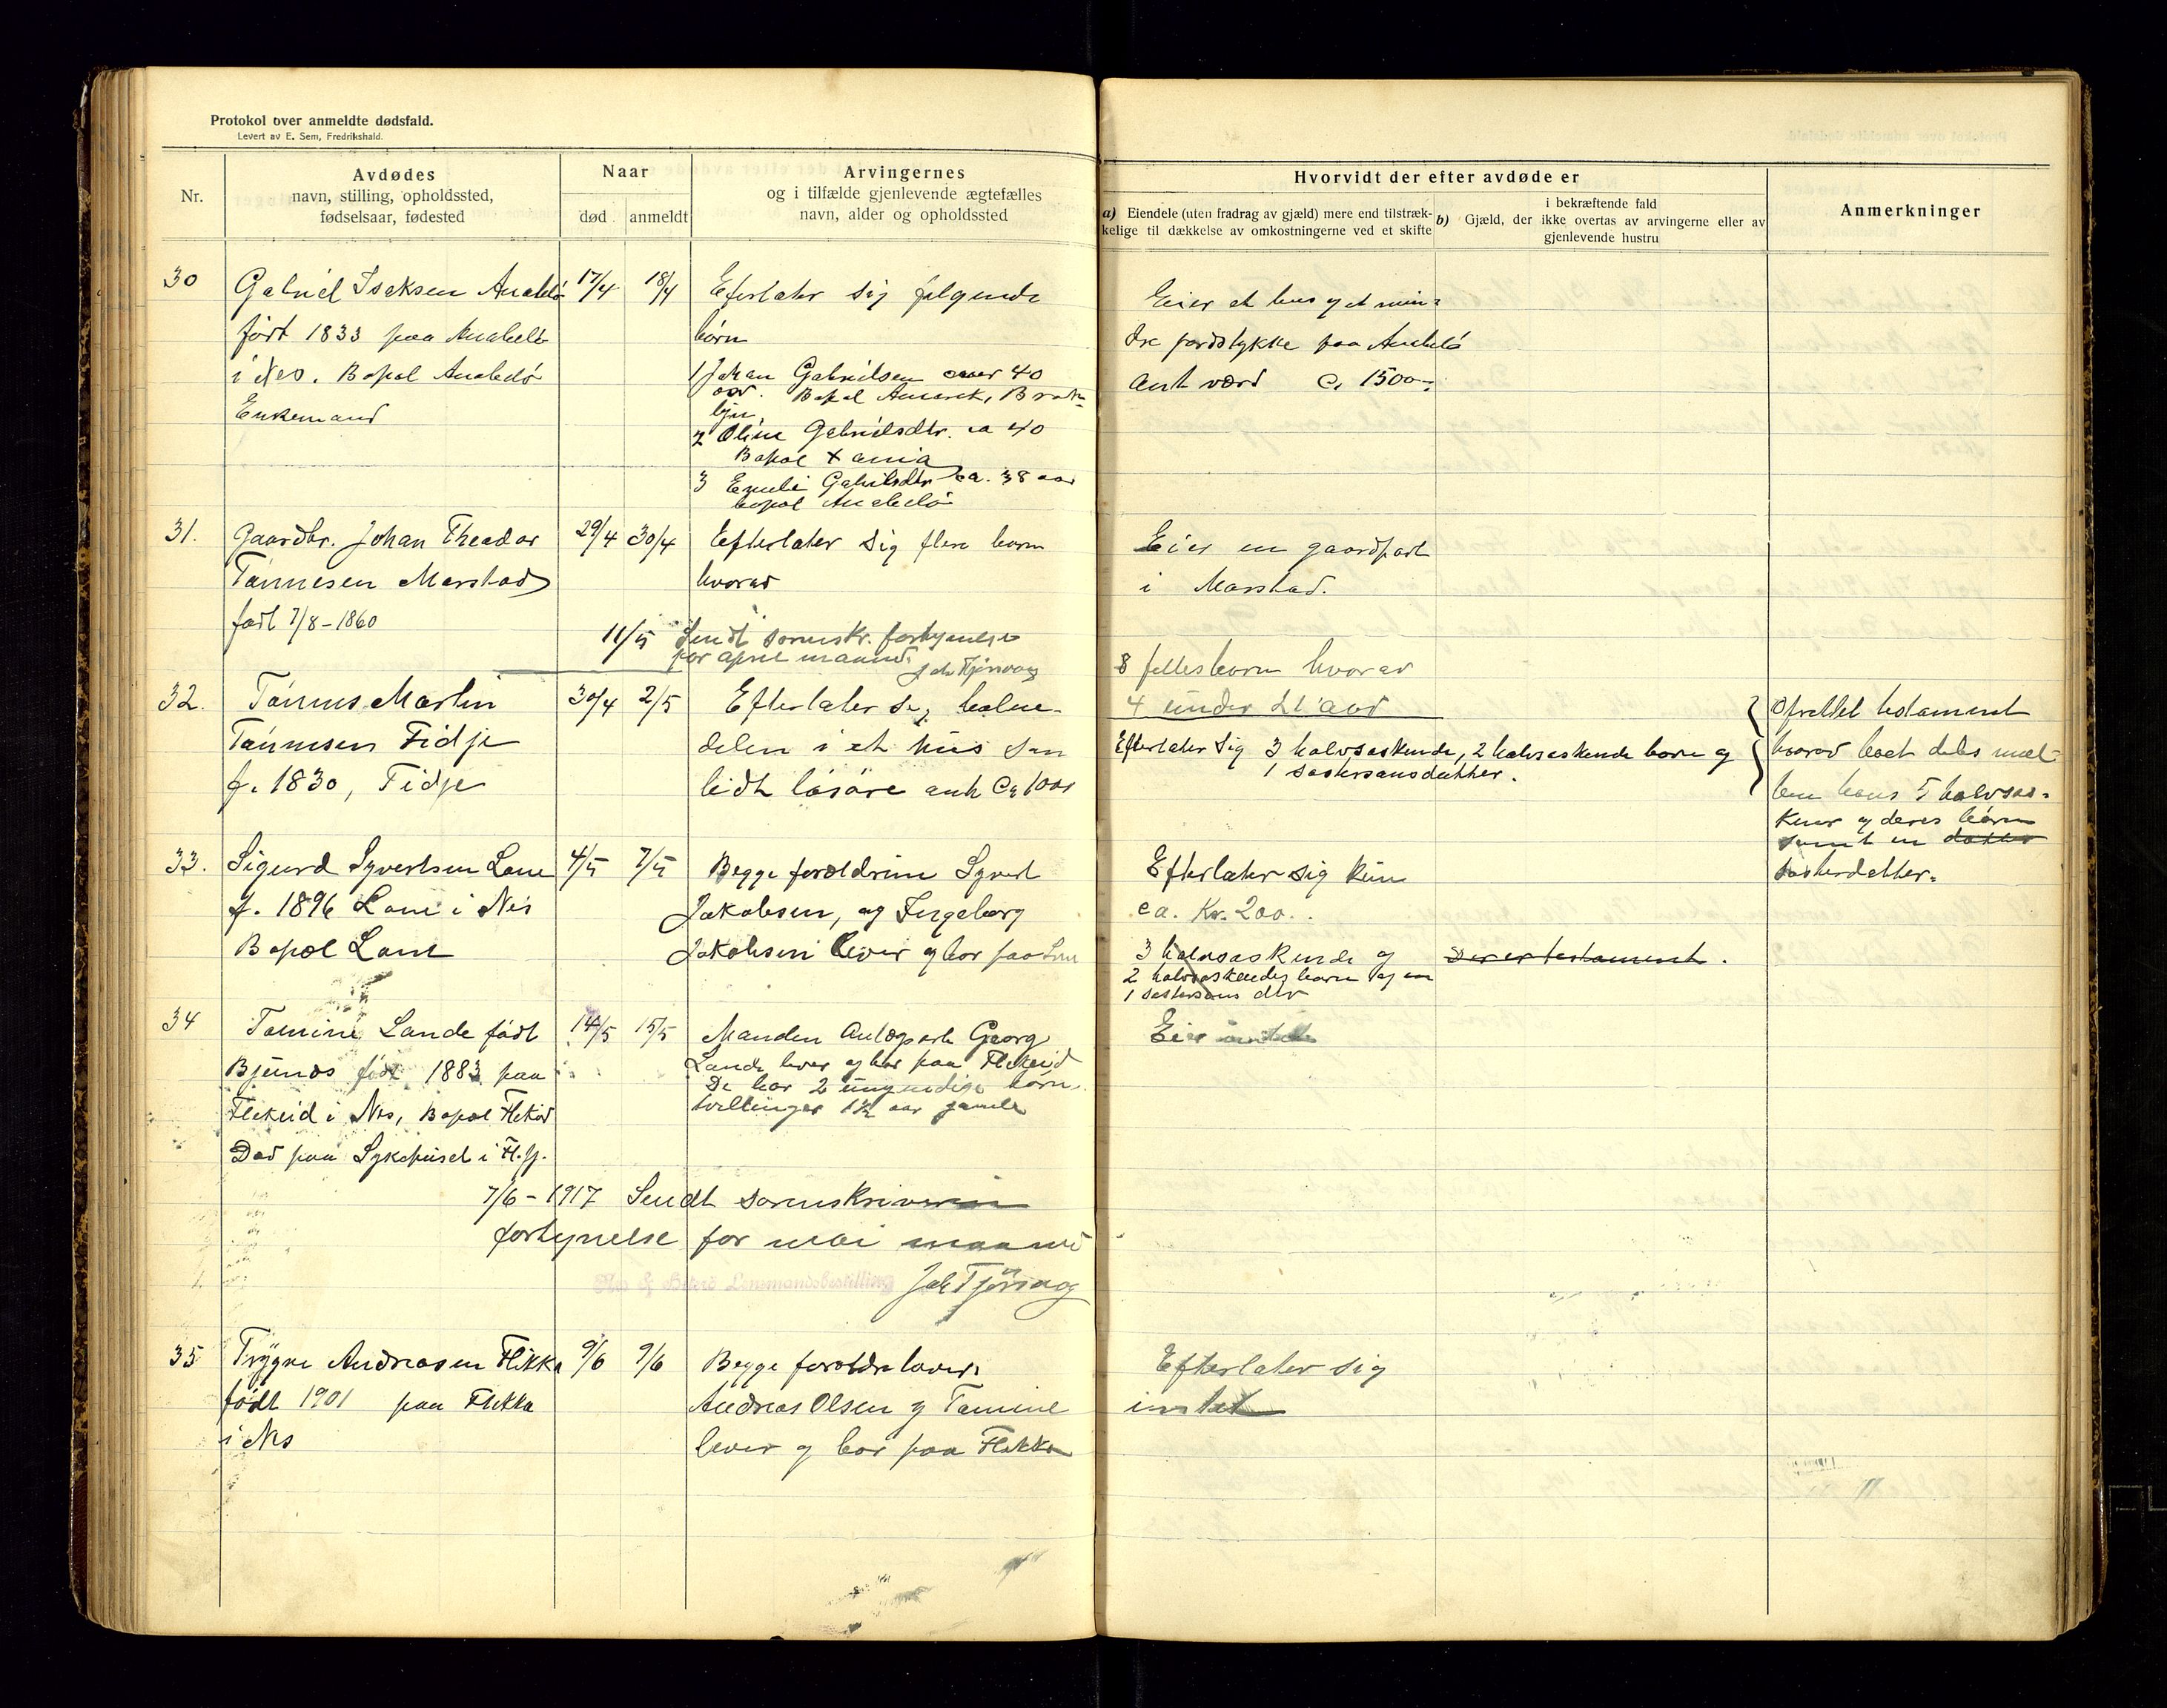 Protokol over anmeldte dødsfald.
Levert av E. Sem, Fredrikshald.
Nr.
Avdødes
navn, stilling, opholdssted,
fødselsaar, fødested
Naar
død
anmeldt
Arvingernes
og i tilfælde gjenlevende ægtefælles
navn, alder og opholdssted
Hvorvidt der efter avdøde er
a) Eiendele (uten fradrag av gjæld) mere end tilstræk-
kelige til dækkelse av omkostningerne ved et skifte
i bekræftende fald
b) Gjæld, der ikke overtas av arvingerne eller av
gjenlevende hustru
Anmerkninger
30
Gabriel Isaksen Anabelø
født 1833 paa Anabelø
i Nes. Bopæl Anabelø
Enkemand
17/4
18/4
Efterlater sig følgende
børn
1 Johan Gabrielsen over 40
aar. Bopæl Amerik, Brok-
lyn
2 Oline Gabrielsdtr. ca 40
Bopæl Xania
3 Emilie Gabrielsdtr ca. 38 aar
bopæl Anabelø
Eier et hus og et min-
dre jordstykke paa Anabelø
ant værd ca 1500-
31.
Gaardbr. Johan Theodor
Tønnesen Marstad
født 7/8-1860
29/4
30/4
Efterlater sig flere børn
hvorav
Eier en gaardpart
i Marstad.
8 fellesbørn hvorav
4 under 21 aar
11/5 Sendt sorenskr. fortegnelse
for april maaned.
Joh Tjørsvaag
32.
Tønnes Martin
Tønnesen Fidje
f. 1830, Fidje
30/4
2/5
Efterlater sig halve-
delen i et hus sam
lidt løsøre ant Ca 1000
Efterlater sig 3 halvsøskende, 2 halvsøskende børn og
1 søstersønsdatter.
Oprettet testament
hvorav boet deles mel-
lem hans 5 halvsøs-
kner og deres børn
samt en datter
søsterdatter.
33.
Sigurd Syvertsen Lone
f. 1896 Lone i Nes
Bopæl Lone
4/5
7/5
Begge forældrene Syvert
Jakobsen, og Ingeborg
Jakobsen lever og bor paa Lone
Efterlater sig kun
ca. Kr. 200..
3 halvsøskende og
2 halvsøskendes børn og en
1 søstersøns dtr
Der er testament.
34
Tomine Lande født
Bjunes født 1883 paa
Flikeid i Nes, Bopæl Flikeid
Død paa Sykehuset i Fl.fj.
14/5
15/5
Manden Anlægsarb Georg
Lande lever og bor paa Flikeid
De har 2 umyndige børn
tvillinger 1½ aar gamle
Eier intet
7/6-1917 Sendt sorenskriveren
fortegnelse for mai maaned
Nes & Hitterø Lensmandsbestilling
Joh Tjørsvaag
35
Trygve Andreasen Flikka
født 1901 paa Flikka
i Nes
9/6
9/6
Begge forældre lever.
Andreas Olsen og Tomine
lever og bor paa Flikka
Efterlater sig
intet